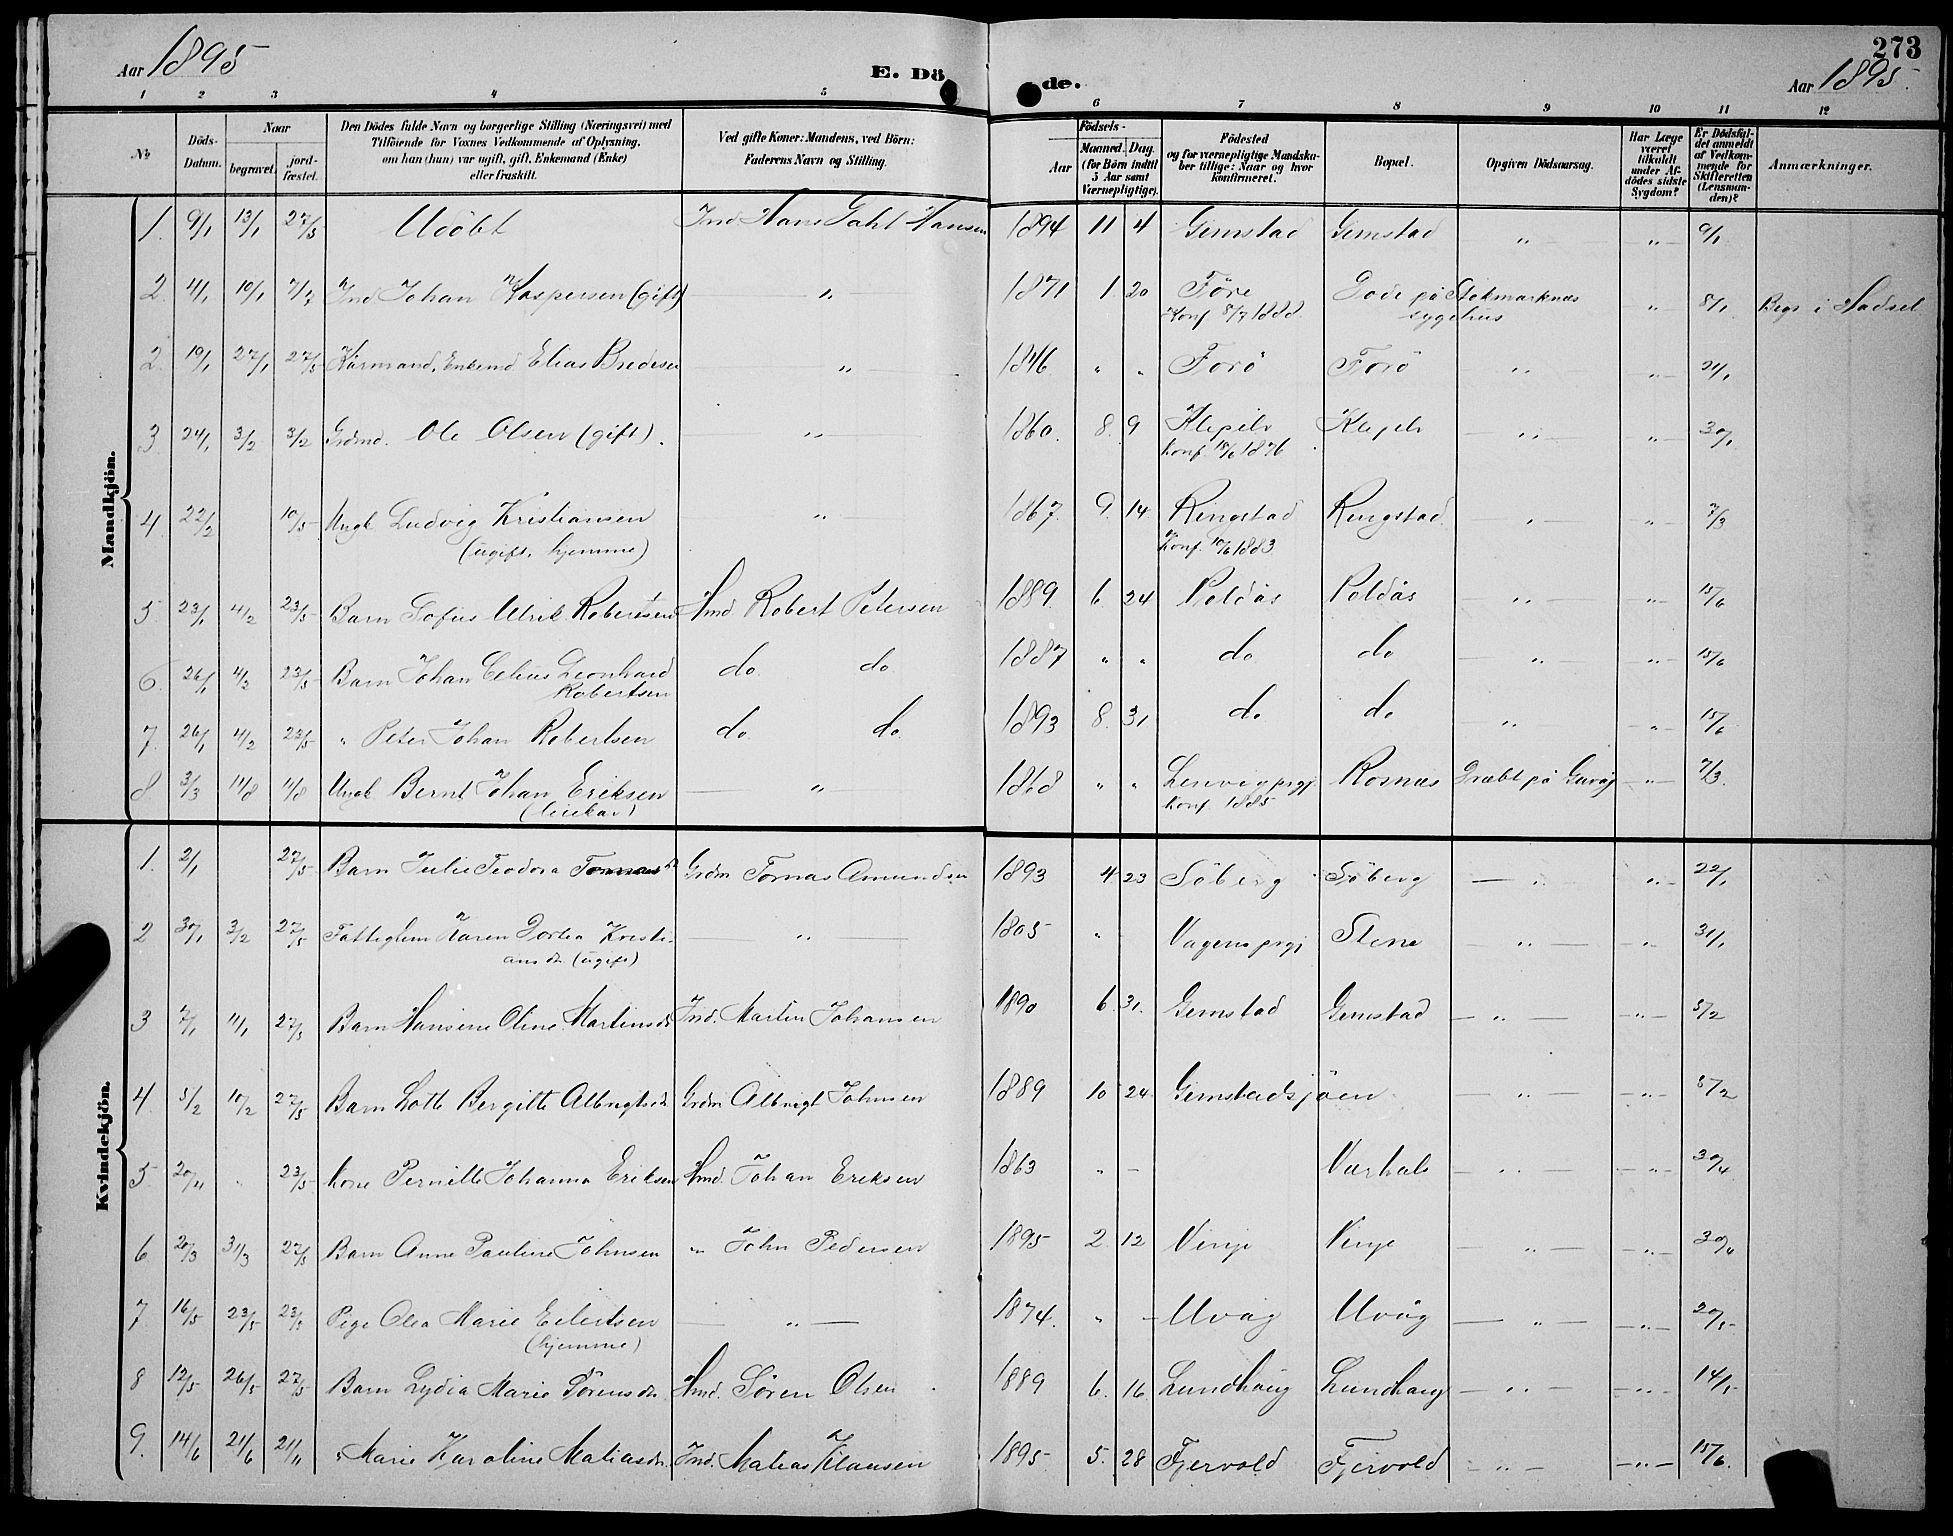 Aar 1895
E. Dö de.
273
Aar 1895.
1 2 3 4 5 6 7 8 9 10 11 12
No
Döds-Datum.
Naar
begravet.
jord-fæstet.
Den Dödes fulde Navn og borgerlige Stilling (Næringsvei) med Tilföiende for Voxnes Vedkommende af Oplysning, om han (hun) var ugift, gift, Enkemand (Enke) eller fraskilt.
Ved gifte Koner: Mandens, ved Börn: Faderens Navn og Stilling.
Födsels-
Aar
Maaned. Dag.
(for Börn indtil 5 Aar samt Værnepligtige).
Födested og for værnepligtige Mandska-ber tillige: Naar og hvor konfirmeret.
Bopæl.
Opgiven Dödsaarsag.
Har Læge været tilkaldt under Af-dödes sidste Sygdom?
Er Dödsfal-det anmeldt af Vedkom-mende for Skifteretten (Lensman-den)?
Anmærkninger.
Mandkjön.
1. 9/1 13/1 27/5 Udöbt Ind. Hans Dahl Hansen 1894 11 4 Gimstad Gimstad " " 9/1
2. 4/1 10/1 7/7 Ind Johan Kaspersen (gift) " 1871 1 20 Före Döde på Stokmarknæs " 8/1 Begr i Hadsel
Konf 8/7 1888 sygehus
2. 19/1 27/1 27/5 Kårmand, Enkemd Elias Bredesen " 1846 " " Forö Forö " " 24/1
3 24/1 3/2 3/2 Grdmd. Ole Olsen (gift). " 1860. 8 9 Klepelv Klepelv " " 30/1
konf. 18/6 1876
4 22/2 10/5 Ungk Ludvig Kristiansen " 1867. 9. 14 Ringstad Ringstad " " 7/3
(ugift, hjemme) Konf. 10/6 1883
5. 23/1 4/2 23/5 Barn Sofus Ulrik Robertsen Hmd Robert Petersen 1889. 6 24 Poldås Poldås " " 15/6
6. 26/1 4/2 23/5 Barn Johan Celius Leonhard do do 1887 " " do do " " 15/6
Robertsen
7. 26/1 4/2 23/5 " Peter Johan Robertsen do do 1893 8. 31 do do " " 15/6
8 3/3 11/8 11/8 Ungk Bernt Johan Eriksen " 1868 " " Lenvig prgj Rosnæs Dræbt på Guvåg " 7/3.
konf 1885
Kvindekjön.
1. 2/1 27/5 Barn Julie Teodora Tomasd Grdm Tomas Amundsen 1893 4 23 Söberg Söberg " " 22/1
2 30/1 3/2 27/5 Fattiglem Karen Dortea Kristi- " 1805 " Vagens prgj Stene " " 31/1
ansdr. (ugift)
3 7/1 11/1 27/5 Barn Hansine Oline Martinsdr Ind. Martin Johansen 1890 6 31. Gimstad Gimstad " " 5/2
4 5/2 10/2 27/5 Barn Lotte Bergitte Albrigtsdr Grdm Albrigt Johnsen 1889 10 24 Gimstadsjöen " " 5/2
5 20/4 " 23/5 Kone Pernille Johanna Eriksen Hmd. Johan Eriksen 1863 " - Varhals " " 30/4
6 20/3 31/3 27/5 Barn Anne Pauline Johnsen " John Pedersen 1895 2 12 Vinje Vinje " " 30/4
7 16/5 23/5 23/5 Pige Olea Marie Eilertsen " 1874. " - Uvåg Uvåg " " 20/5
(hjemme)
8 12/5 26/5 27/5 Barn Lydia Marie Sörensdr Hmd. Sören Olsen 1889 6. 16 Lundhaug Lundhaug " " 14/5
9. 14/6 21/6 21/11 " Marie Karoline Matiasdr. Ind. Matias Klausen 1895 5. 28 Fjervold Fjervold " " 15/6.